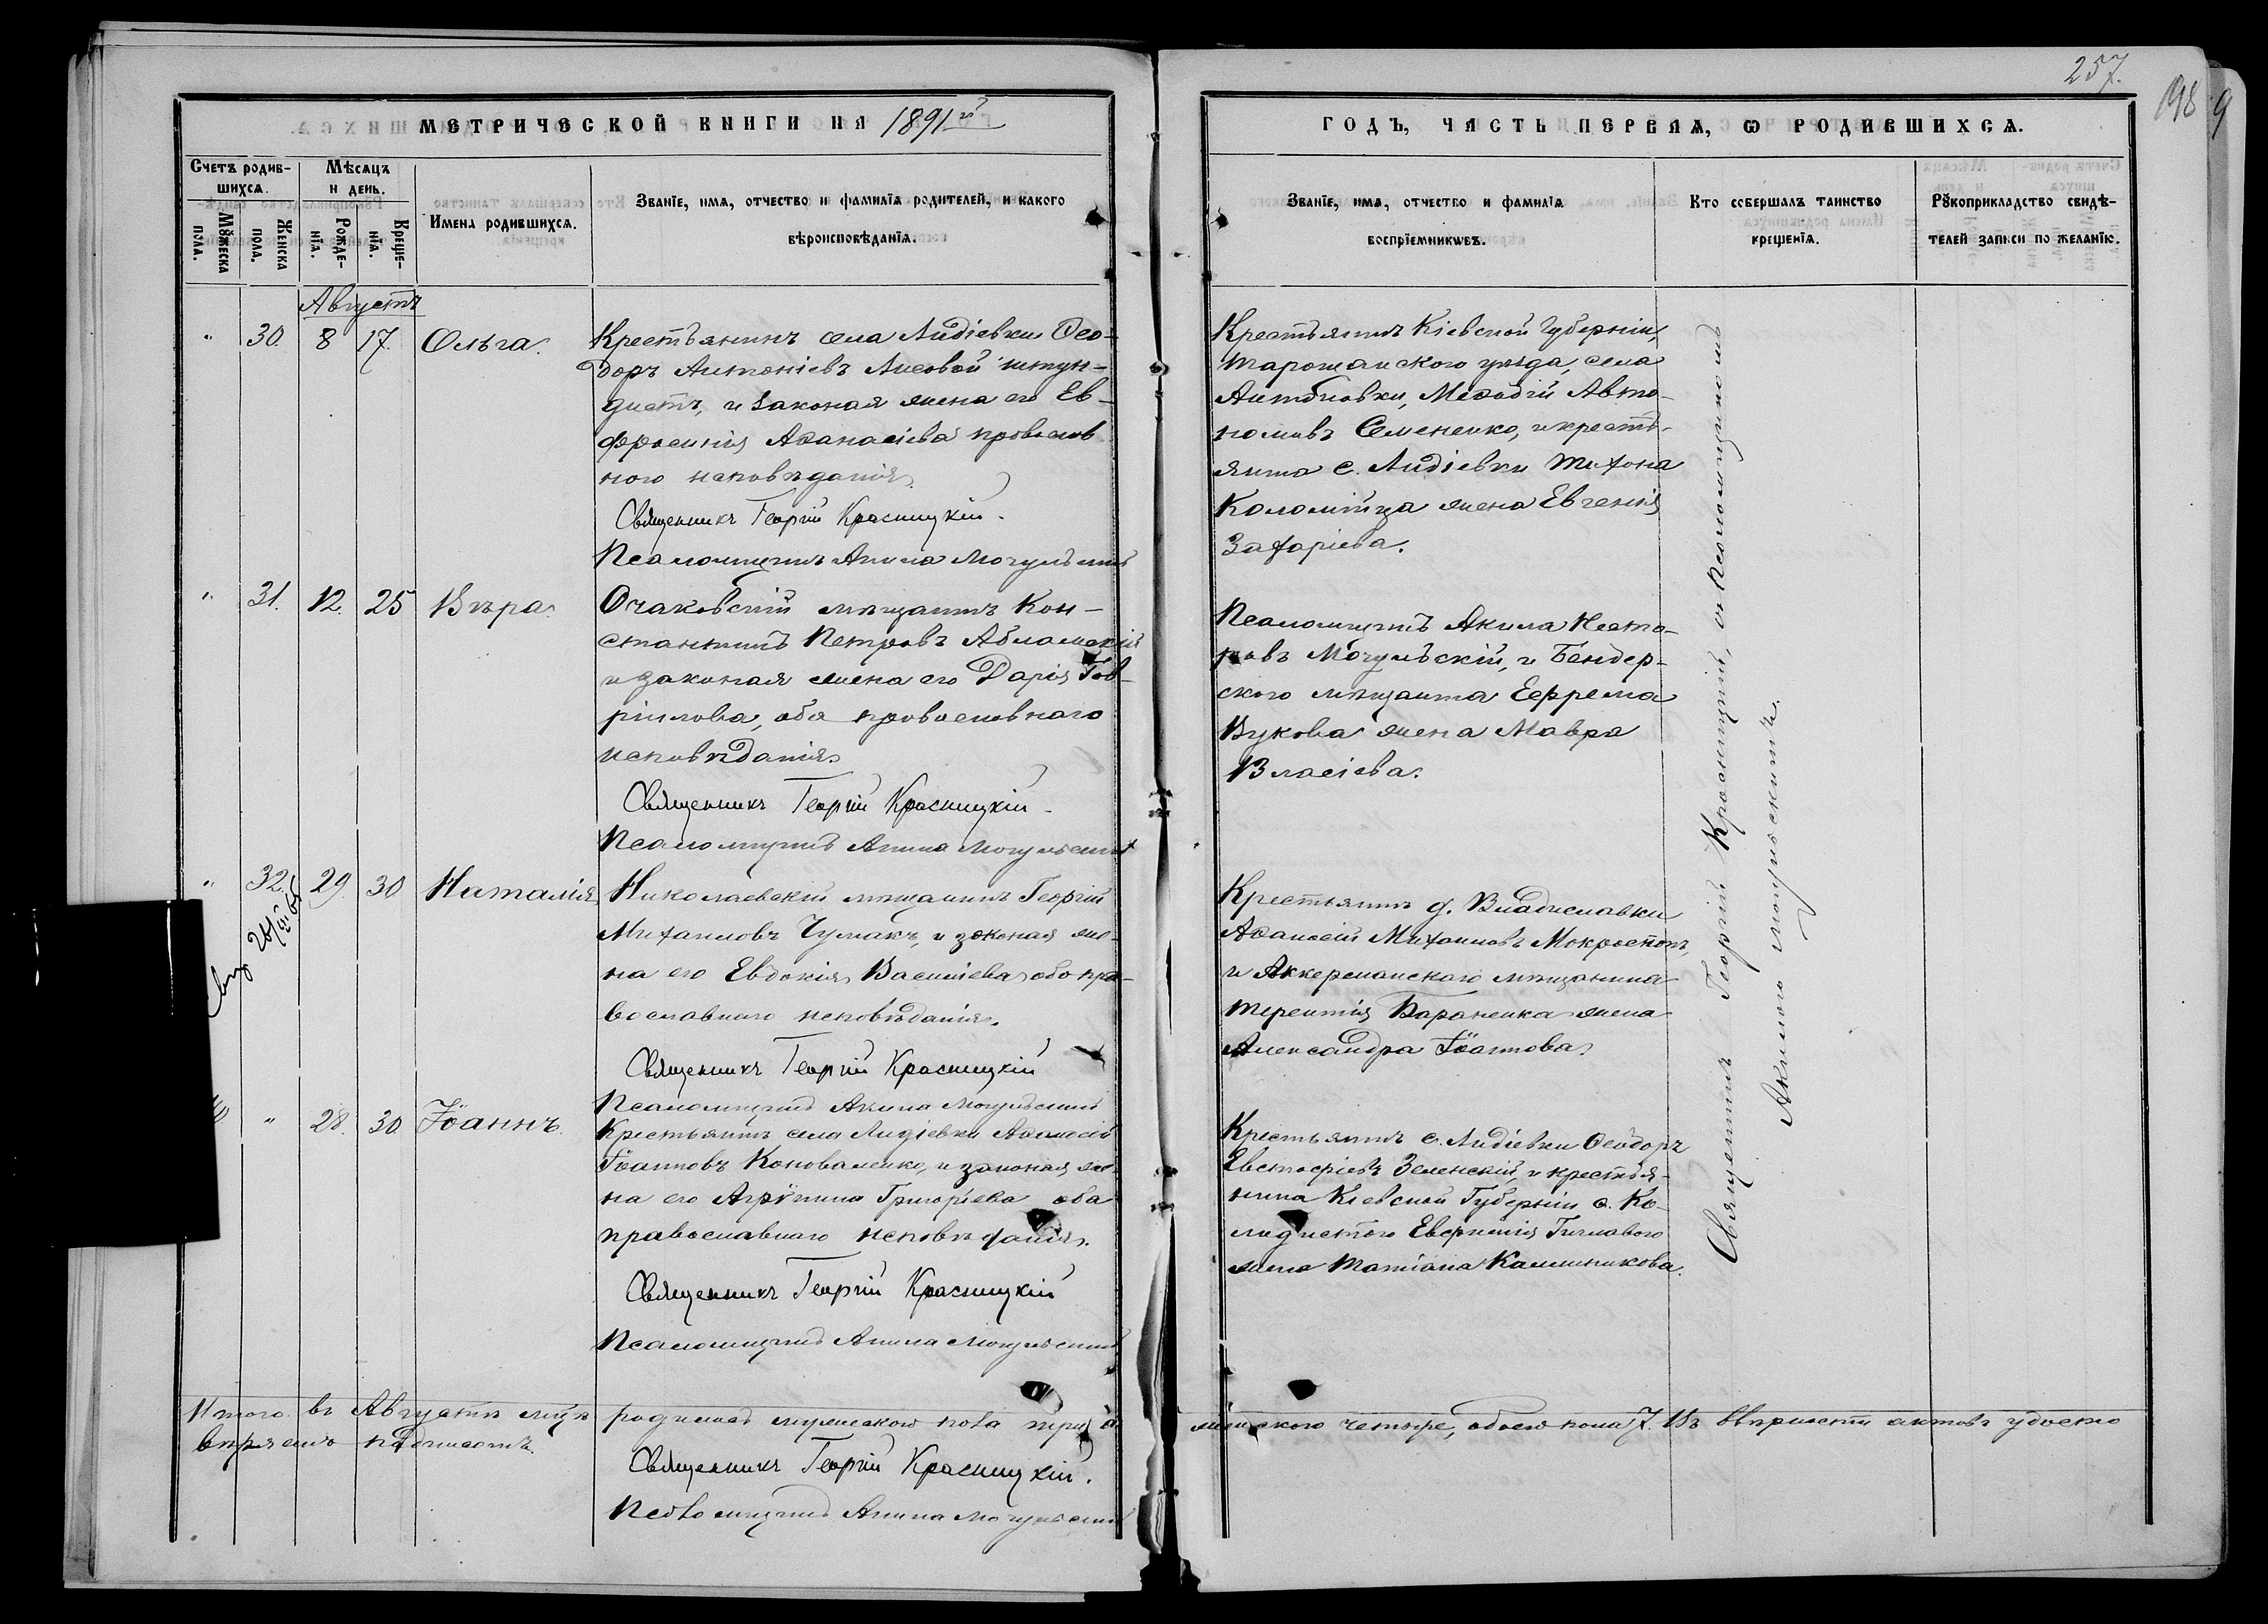 257.
198 9
МЕТРИЧЕСКОЙ КНИГИ НА 1891й
ГОДЪ, ЧАСТЬ ПЕРВАЯ, Ѡ РОДИВШИХСѦ.
Счетъ родив-
шихсѧ.
Мꙋжеска
пола.
Женска
пола.
Мѣсяцъ
и день.
Рожде-
нїѧ.
Креще-
нїѧ.
Имена родившихсѧ.
Званїе, имѧ, отчество и фамилїѧ родителей, и какого
вѣроисповѣданїѧ.
Званїе, имѧ, отчество и фамилїѧ
воспрїемникѡвъ.
Кто совершалъ таинство
крещенїѧ.
Рꙋкоприкладство свидѣ-
телей записи по желанїю.
Августъ
" 30. 8 17. Ольга.
Крестьянинъ села Лидіевки Ѳео-
доръ Антоніевъ Лисовой штун-
дистъ, и законая жена его Ев-
фросинія Аѳанасіева православ
ного исповѣданія.
Священникъ Георгій Красницкій.
Псаломщикъ Акила Могульскій
Крестьянинъ Кіевской Губерніи,
Таращанского уѣзда, села
Антоновки, Меѳодій Авто-
номивъ Семененко, и крестья-
янина с. Лидіевки Тихона
Коломійца жена Евгенія
Захаріева.
" 31. 12. 25 Вѣра.
Очаковскій мѣщанинъ Кон-
стантинъ Петровъ Абламскій
и законая жена его Дарія Гав-
ріилова, оба православнаго
исповѣданія.
Священникъ Георгій Красницкій.
Псаломщикъ Акила Могульскій
Псаломщикъ Акила Несто-
ровъ Могульскій, и Бендер-
ского мѣщанина Ефрема
Вукова жена Мавра
Власіева.
" 32. 29. 30 Наталія
Николаевскій мѣщанинъ Георгій
Михаиловъ Чумакъ, и законая же-
на его Евдокія Василіева оба пра-
вославнаго исповѣданія.
Священникъ Георгій Красницкій
Псаломщикъ Акила Могульскій
Крестьянинъ д. Владиславки
Аѳанасій Михаиловъ Мокростопъ,
и Аккерманскаго мѣщанина
Терентія Бараненка жена
Александра Іоаннова.
" 28. 30 Іоаннъ.
Крестьянинъ села Лидіевки Аѳанасій
Іоанновъ Коноваленко, и законая же-
на его Агрипина Григоріева оба
православнаго исповѣданія.
Священникъ Георгій Красницкій
Псаломщикъ Акила Могульскій
Крестьянинъ с. Лидіевки Ѳеодоръ
Евстафіевъ Зеленскій, и крестья-
нина Кіевской Губерніи с.
жена Татіана Калинникова.
Священникъ Георгій Красницкій, съ Псаломщикомъ
Акилою Могульскимъ.
Итого въ Августѣ м-цѣ родилось мужескаго пола три а женского четыре, обоего пола 7. Въ вѣрности актовъ удосто
вѣряемъ подписомъ.
Священникъ Георгій Красницкій.
Псаломщикъ Акила Могульскій